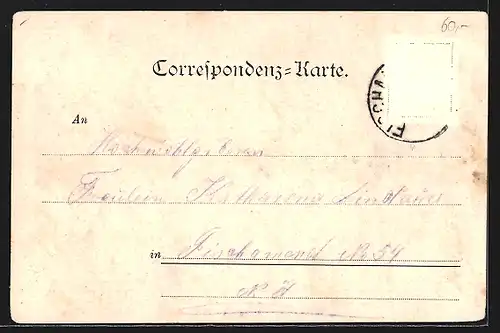 60,-
Correspondenz=Karte.
FISCHA
An
Hochwohlgeboren
Fräulein Katharina Lindauer
in Fischamend No 54
N. Ö